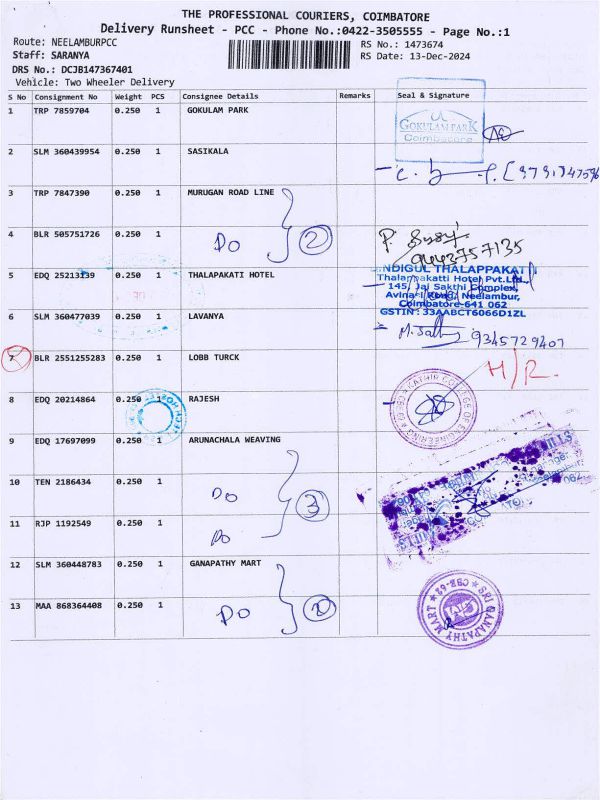 THE PROFESSIONAL COURIERS, COIMBATORE
Delivery Runsheet - PCC - Phone No.:0422-3505555 - Page No.:1
Route: NEELAMBURPCC
Staff: SARANYA
DRS No.: DCJB147367401
Vehicle: Two Wheeler Delivery
RS No.: 1473674
RS Date: 13-Dec-2024
S No Consignment No Weight PCS Consignee Details Remarks Seal & Signature
1 TRP 7859704 0.250 1 GOKULAM PARK
GOKULAM PARK
Coimbatore
2 SLM 360439954 0.250 1 SASIKALA
3 TRP 7847390 0.250 1 MURUGAN ROAD LINE
4 BLR 505751726 0.250 1 DO 2
9443757135
5 EDQ 25213139 0.250 1 THALAPAKATI HOTEL
NDIGUL THALAPPAKATTI
Thalappakatti Hotel Pvt.Ltd.
145, Jai Sakthi Complex,
Avinasi Road, Neelambur,
Coimbatore-641 062
GSTIN : 33AABCT6066D1ZL
6 SLM 360477039 0.250 1 LAVANYA
9345729407
7 BLR 2551255283 0.250 1 LOBB TURCK H/R.
8 EDQ 20214864 0.250 1 RAJESH
COLLEGE OF ENGINEERING
9 EDQ 17697099 0.250 1 ARUNACHALA WEAVING
10 TEN 2186434 0.250 1 DO
11 RJP 1192549 0.250 1 DO 3
12 SLM 360448783 0.250 1 GANAPATHY MART
13 MAA 868364408 0.250 1 DO 2
SRI GANAPATHY MART CBE-62